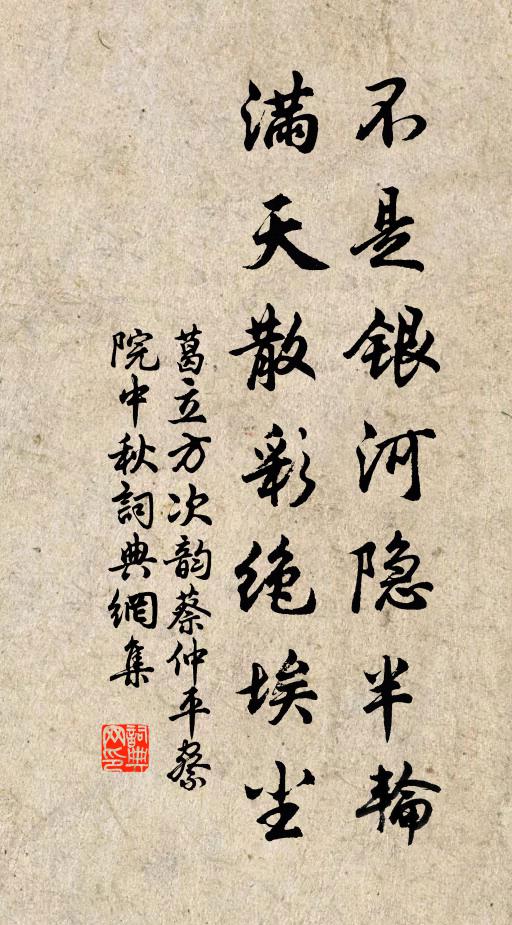 不是银河隐半輪
满天散彩绝埃尘
葛立方次韵蔡仲平察
院中秋詞典網集
詞典網印